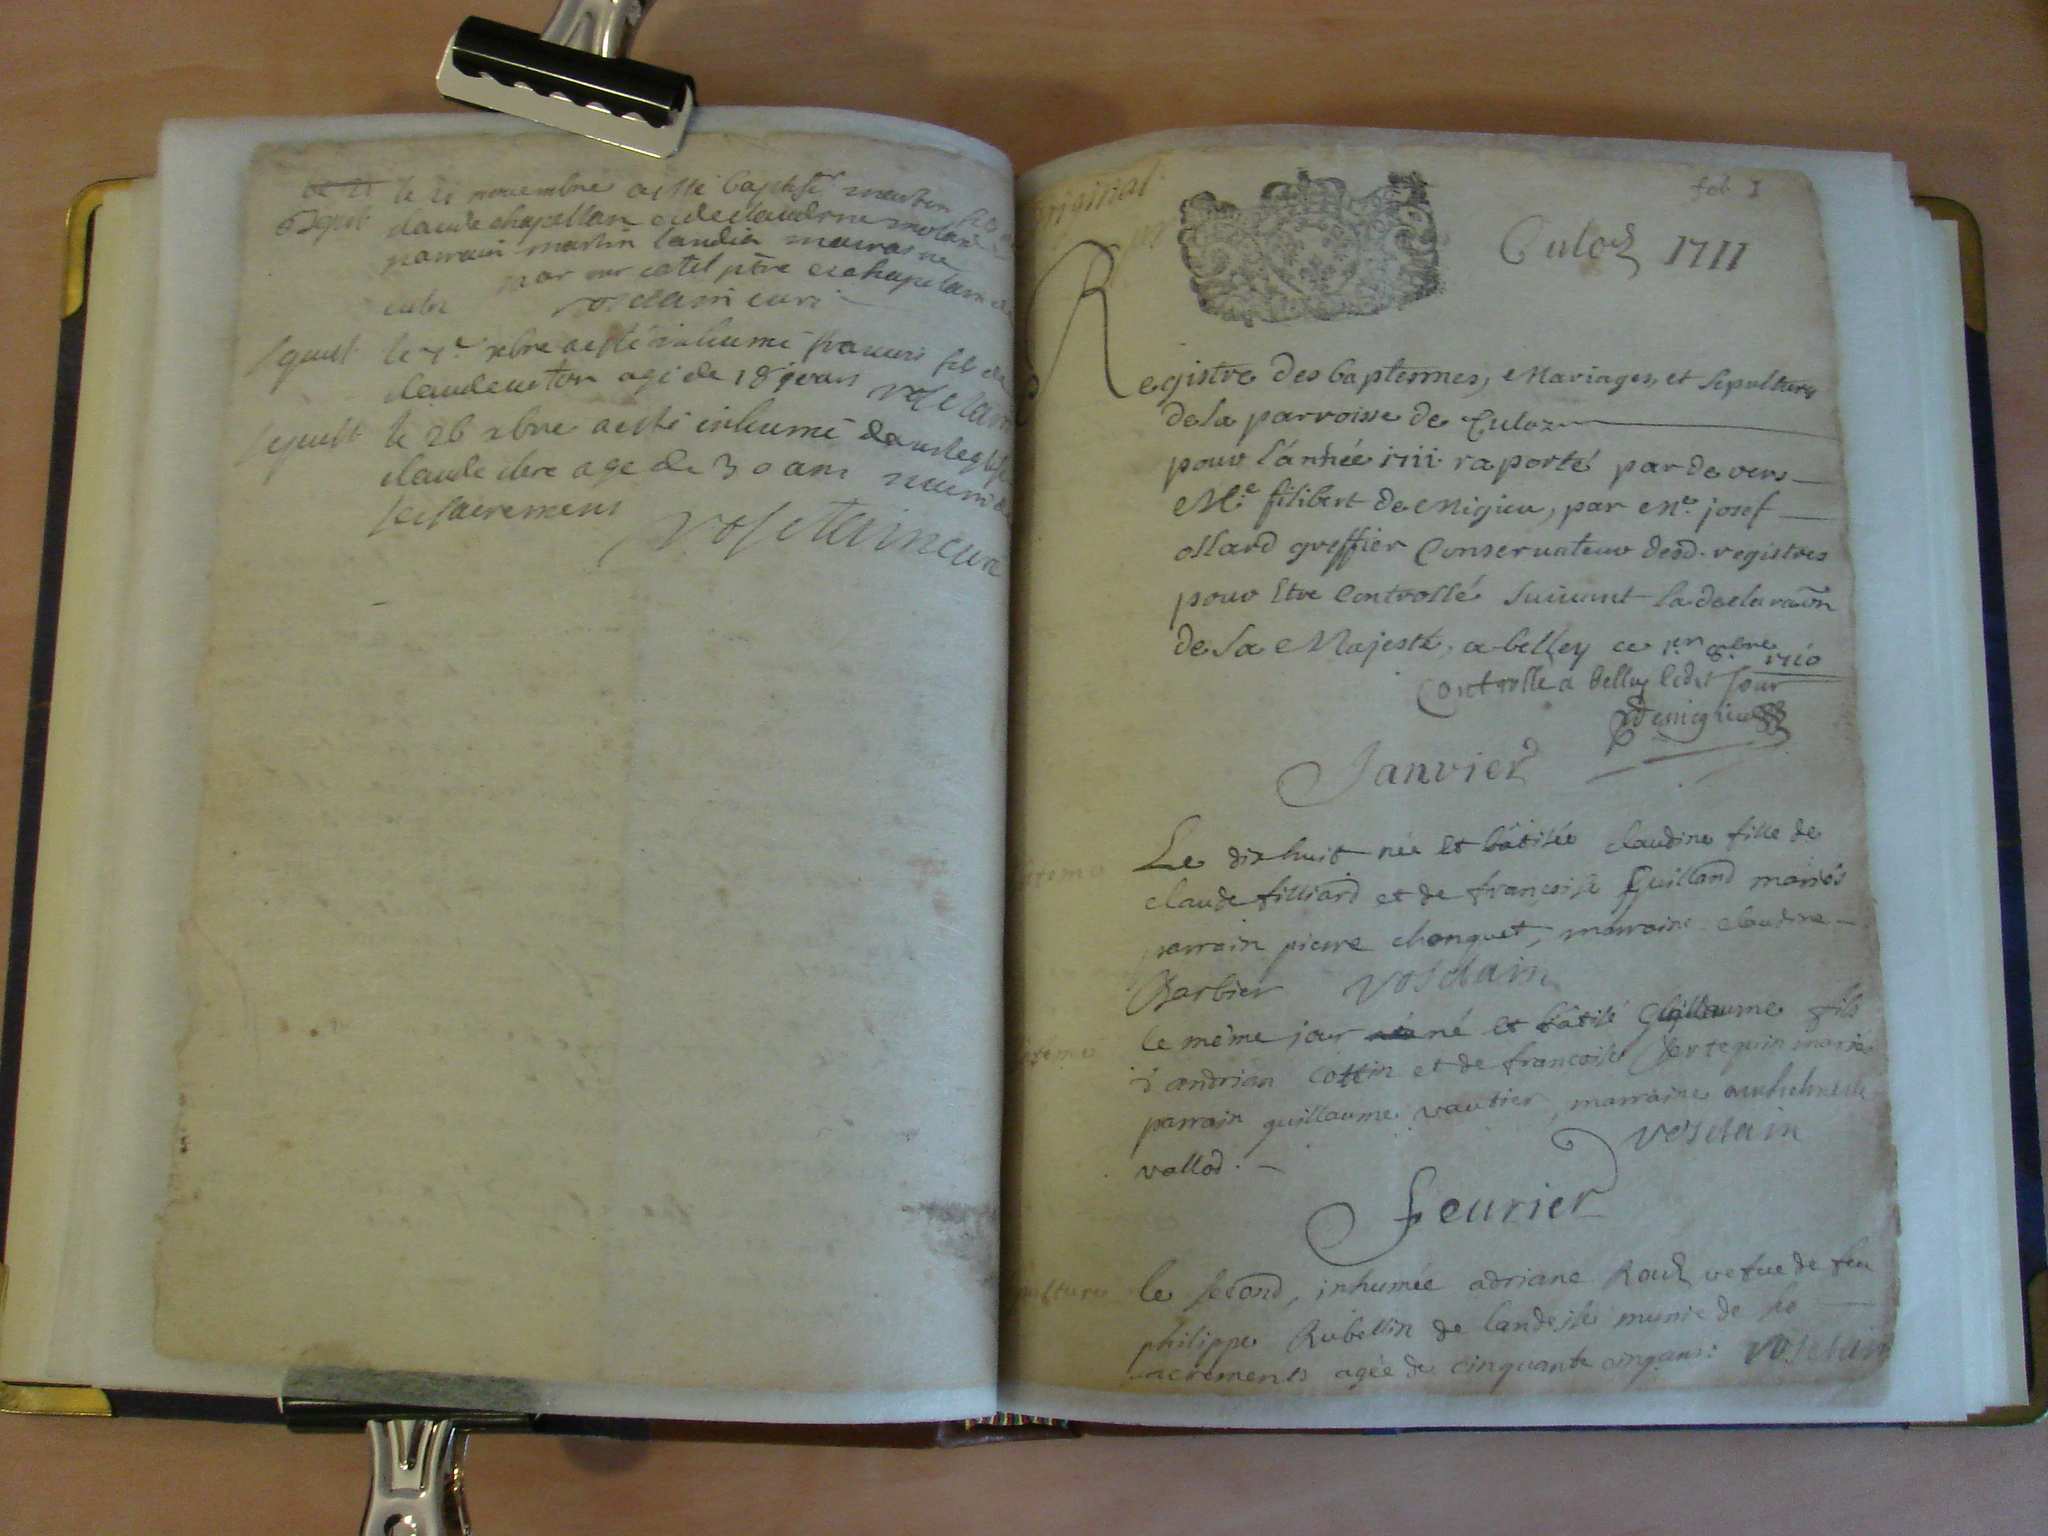 le 21 novembre a esté baptisé martin fils de
Bapt claude chapellan et de claudine molard
parrain martin landia
par mr catel ptre et chapelain
vosdain curé
Sepult le 7e xbre a esté inhumé francois fils de
agé de 18 jours vosdain
Sepult le 26 xbre a esté inhumé dans leglise
claude age de 30 ans muni de
ses sacremens
vosdain cure
original
fol 1
Culoz 1711
Registre des baptesmes, Mariages, et sepultures
de la parroisse de Culoz
pour l'année 1711 raporté par de vers
Me filibert de Migieu, par Me josef
ollard greffier Conservateur desd. registres
pour Etre Controllé suivant la declaraon
de Sa Majesté, a belley ce 1er 8bre 1710
Controllé a belley ledit jour
Demigieu
Janvier
Le dixhuit née et bâtisée claudine fille de
claude filliard et de françoise guilland mariés
parrain pierre chonguet, marraine claudine
Barbier vosdain
le même jour né et bâtisé Guillaume fils
d'andrian cottin et de francoise bertequin mariés
parrain guillaume vautier, marraine
vallod. vosdain
feurier
pulture le second, inhumée adriane Roux vefue de feu
philippe Rubellin de landesse munie de
sacrements agée de cinquante cinq ans: vosdain